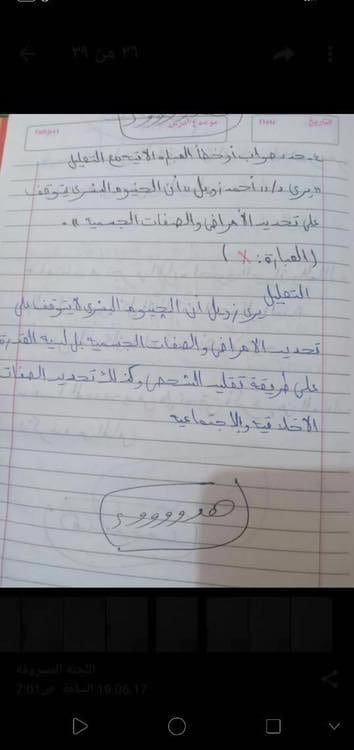 ٢٦ من ٣٩
التاريخ Date موضوع الدرس Subject
٤- حدد صواب أو خطأ العبارة الآتية مع التعليل
« يرى د/ أحمد زويل " أن الجينوم البشري يتوقف
على تحديد الأمراض والصفات الجسمية ».
(العبارة: X )
التعليل
يرى زويل أن الچينوم البشري لا يتوقف على
تحديد الأمراض والصفات الجسمية بل لديه القدرة
على طريقة تفكير الشخص وكذلك تحديد الصفات
الأخلاقية والاجتماعية
اللجنة المسروقة
19.06.17 الساعة 2:01 ص